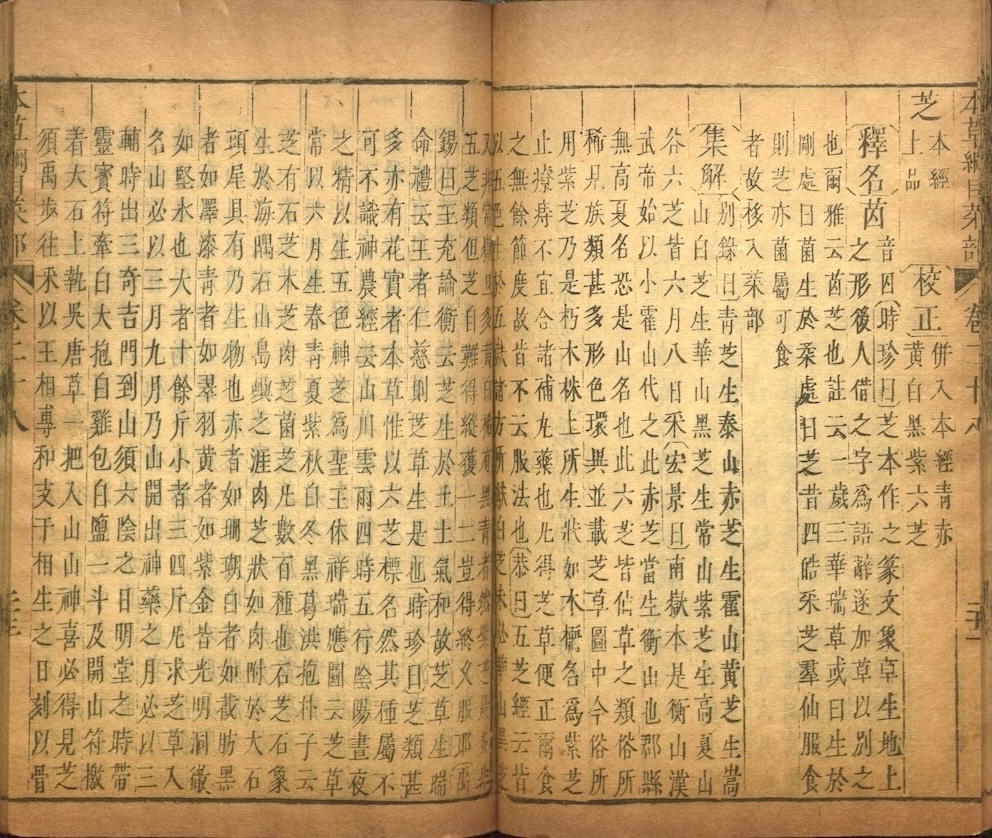 本草綱目菜部 卷二十八
芝 本經上品 校正 併入本經青赤黃白黑紫六芝
釋名 茵 音囚 時珍曰芝本作之篆文象草生地上
之形後人借之字為語辭遂加草以別之
也爾雅云茵芝也註云一歲三華瑞草或曰生於
剛處曰菌生於柔處曰芝昔四皓采芝羣仙服食
則芝亦菌屬可食
者故移入菜部
集解 別錄曰青芝生泰山赤芝生霍山黃芝生嵩
山白芝生華山黑芝生常山紫芝生高夏山
谷六芝皆六月八日采宏景曰南嶽本是衡山漢
武帝始以小霍山代之此赤芝當生衡山也郡縣
無高夏名恐是山名也此六芝皆仙草之類俗所
稀見族類甚多形色環異並載芝草圖中今俗所
用紫芝乃是朽木株上所生狀如木檽各爲紫芝
止療痔不宜合諸補丸藥也凡得芝草便正爾食
之無餘節度故皆不云服法也恭曰五芝經云皆
以五色生於五嶽諸方所獻白芝未必華山黑芝
又非常嶽且多黃白稀有黑青者然紫芝最多非
五芝類但芝自難得縱獲一二豈得終久服耶禹
錫曰王充論衡云芝生於土土氣和故芝草生瑞
命禮云王者仁慈則芝草生是也時珍曰芝類甚
多亦有花實者本草惟以六芝標名然其種屬不
可不識神農經云山川雲雨四時五行陰陽晝夜
之精以生五色神芝爲聖王休祥瑞應圖云芝草
常以六月生春青夏紫秋白冬黑葛洪抱朴子云
芝有石芝木芝肉芝菌芝凡數百種也石芝石象
生於海隅石山島嶼之涯肉芝狀如肉附於大石
頭尾具有乃生物也赤者如珊瑚白者如截肪黑
者如澤漆青者如翠羽黃者如紫金皆光明洞徹
如堅氷也大者十餘斤小者三四斤凡求芝草入
名山必以三月九月乃山開出神藥之月必以三
輔時出三奇吉門到山須六陰之日明堂之時帶
靈寶符牽白犬抱白雞包白鹽一斗及開山符檄
著大石上執吳唐草一把入山山神喜必得見芝
須禹步往采以王相專和支干相生之日刻以骨
本草綱目菜部 卷二十八